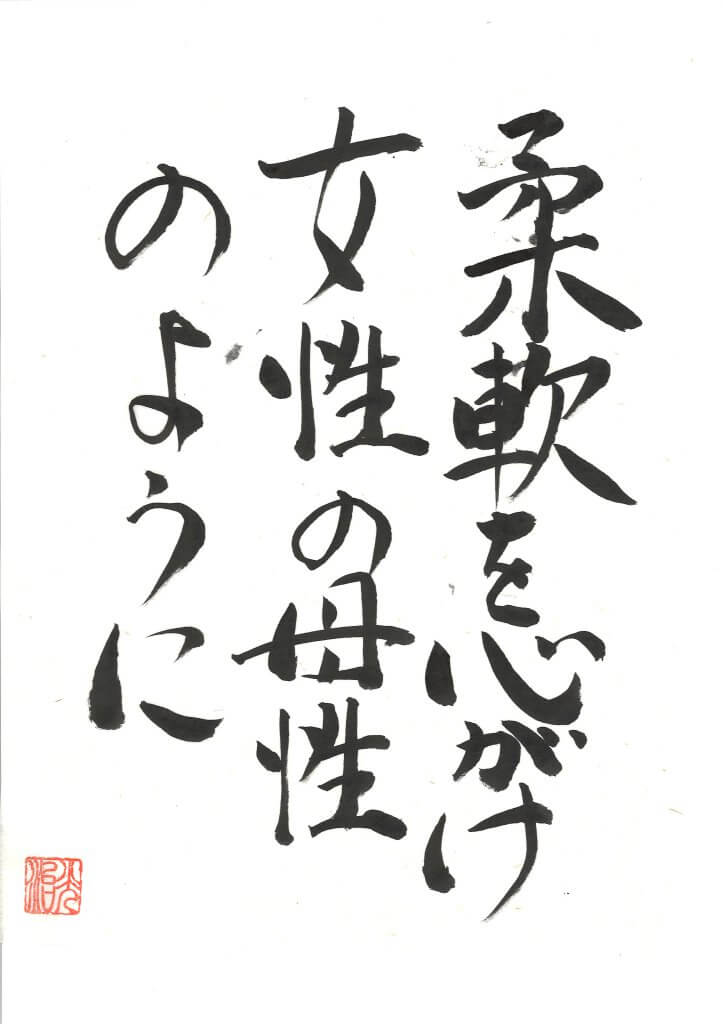 柔軟を心がけ
女性の母性
のように